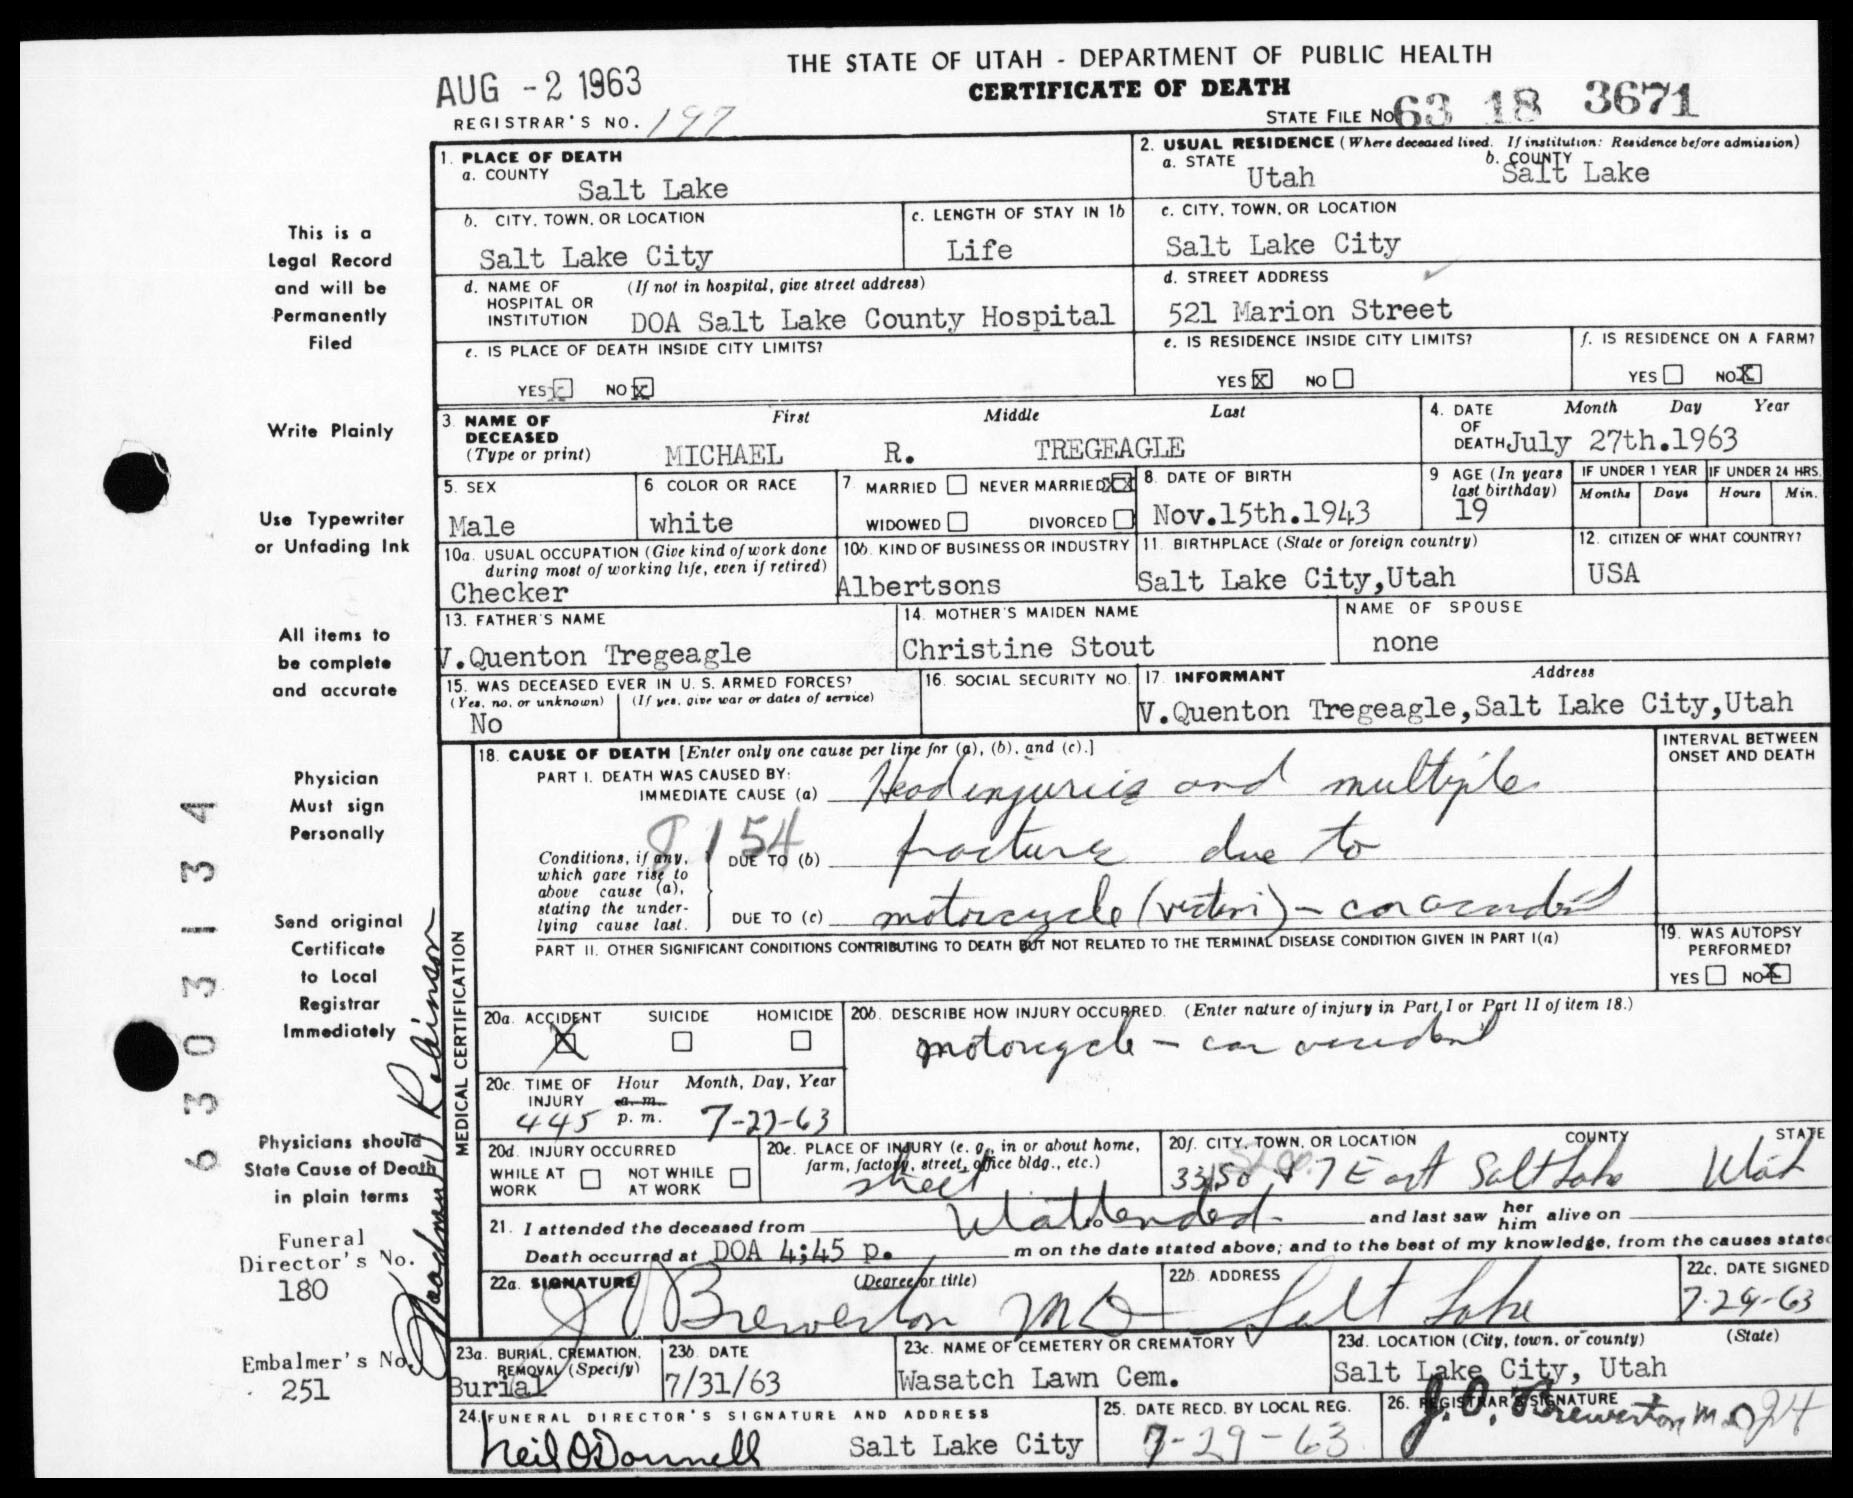 THE STATE OF UTAH - DEPARTMENT OF PUBLIC HEALTH
AUG -2 1963
CERTIFICATE OF DEATH
REGISTRAR'S NO. 197
STATE FILE NO. 63 18 3671
1. PLACE OF DEATH
a. COUNTY
Salt Lake
2. USUAL RESIDENCE (Where deceased lived. If institution: Residence before admission)
a. STATE
Utah
b. COUNTY
Salt Lake
b. CITY, TOWN, OR LOCATION
Salt Lake City
c. LENGTH OF STAY IN 1b
Life
c. CITY, TOWN, OR LOCATION
Salt Lake City
d. NAME OF HOSPITAL OR INSTITUTION
(If not in hospital, give street address)
DOA Salt Lake County Hospital
d. STREET ADDRESS
521 Marion Street
e. IS PLACE OF DEATH INSIDE CITY LIMITS?
YES NO X
e. IS RESIDENCE INSIDE CITY LIMITS?
YES X NO
f. IS RESIDENCE ON A FARM?
YES NO X
3. NAME OF DECEASED
(Type or print)
First Middle Last
MICHAEL R. TREGEAGLE
4. DATE OF DEATH
Month Day Year
July 27th.1963
5. SEX
Male
6 COLOR OR RACE
white
7. MARRIED NEVER MARRIED XX
WIDOWED DIVORCED
8. DATE OF BIRTH
Nov.15th.1943
9 AGE (In years last birthday)
19
IF UNDER 1 YEAR
Months Days
IF UNDER 24 HRS.
Hours Min.
10a. USUAL OCCUPATION (Give kind of work done during most of working life, even if retired)
Checker
10b. KIND OF BUSINESS OR INDUSTRY
Albertsons
11. BIRTHPLACE (State or foreign country)
Salt Lake City,Utah
12. CITIZEN OF WHAT COUNTRY?
USA
13. FATHER'S NAME
V.Quenton Tregeagle
14. MOTHER'S MAIDEN NAME
Christine Stout
NAME OF SPOUSE
none
15. WAS DECEASED EVER IN U. S. ARMED FORCES?
(Yes, no, or unknown) (If yes, give war or dates of service)
No
16. SOCIAL SECURITY NO.
17. INFORMANT Address
V.Quenton Tregeagle,Salt Lake City,Utah
MEDICAL CERTIFICATION
18. CAUSE OF DEATH [Enter only one cause per line for (a), (b), and (c).]
INTERVAL BETWEEN ONSET AND DEATH
PART I. DEATH WAS CAUSED BY:
IMMEDIATE CAUSE (a) Head injuries and multiple
8154
Conditions, if any, which gave rise to above cause (a), stating the underlying cause last.
DUE TO (b) fractures due to
DUE TO (c) motorcycle (victim) - car accident
PART II. OTHER SIGNIFICANT CONDITIONS CONTRIBUTING TO DEATH BUT NOT RELATED TO THE TERMINAL DISEASE CONDITION GIVEN IN PART I(a)
19. WAS AUTOPSY PERFORMED?
YES NO X
20a. ACCIDENT X SUICIDE HOMICIDE
20b. DESCRIBE HOW INJURY OCCURRED. (Enter nature of injury in Part I or Part II of item 18.)
motorcycle - car accident
20c. TIME OF INJURY
Hour Month, Day, Year
a. m.
445 p. m. 7-27-63
20d. INJURY OCCURRED
WHILE AT WORK NOT WHILE AT WORK
20e. PLACE OF INJURY (e. g., in or about home, farm, factory, street, office bldg., etc.)
street
20f. CITY, TOWN, OR LOCATION COUNTY STATE
7 East Salt Lake Utah
21. I attended the deceased from Unattended and last saw her him alive on
Death occurred at DOA 4;45 p. m on the date stated above; and to the best of my knowledge, from the causes stated
22a. SIGNATURE (Degree or title)
J Brewerton MD
22b. ADDRESS
Salt Lake
22c. DATE SIGNED
7-29-63
23a. BURIAL, CREMATION, REMOVAL (Specify)
Burial
23b. DATE
7/31/63
23c. NAME OF CEMETERY OR CREMATORY
Wasatch Lawn Cem.
23d. LOCATION (City, town, or county) (State)
Salt Lake City, Utah
24. FUNERAL DIRECTOR'S SIGNATURE AND ADDRESS
Neil O'Donnell Salt Lake City
25. DATE RECD. BY LOCAL REG.
7-29-63
26. REGISTRAR'S SIGNATURE
J. O. Brewerton M.D.
This is a
Legal Record
and will be
Permanently
Filed
Write Plainly
Use Typewriter
or Unfading Ink
All items to
be complete
and accurate
Physician
Must sign
Personally
Send original
Certificate
to Local
Registrar
Immediately
Physicians should
State Cause of Death
in plain terms
Funeral
Director's No.
180
Embalmer's No.
251
6303134
Robinson